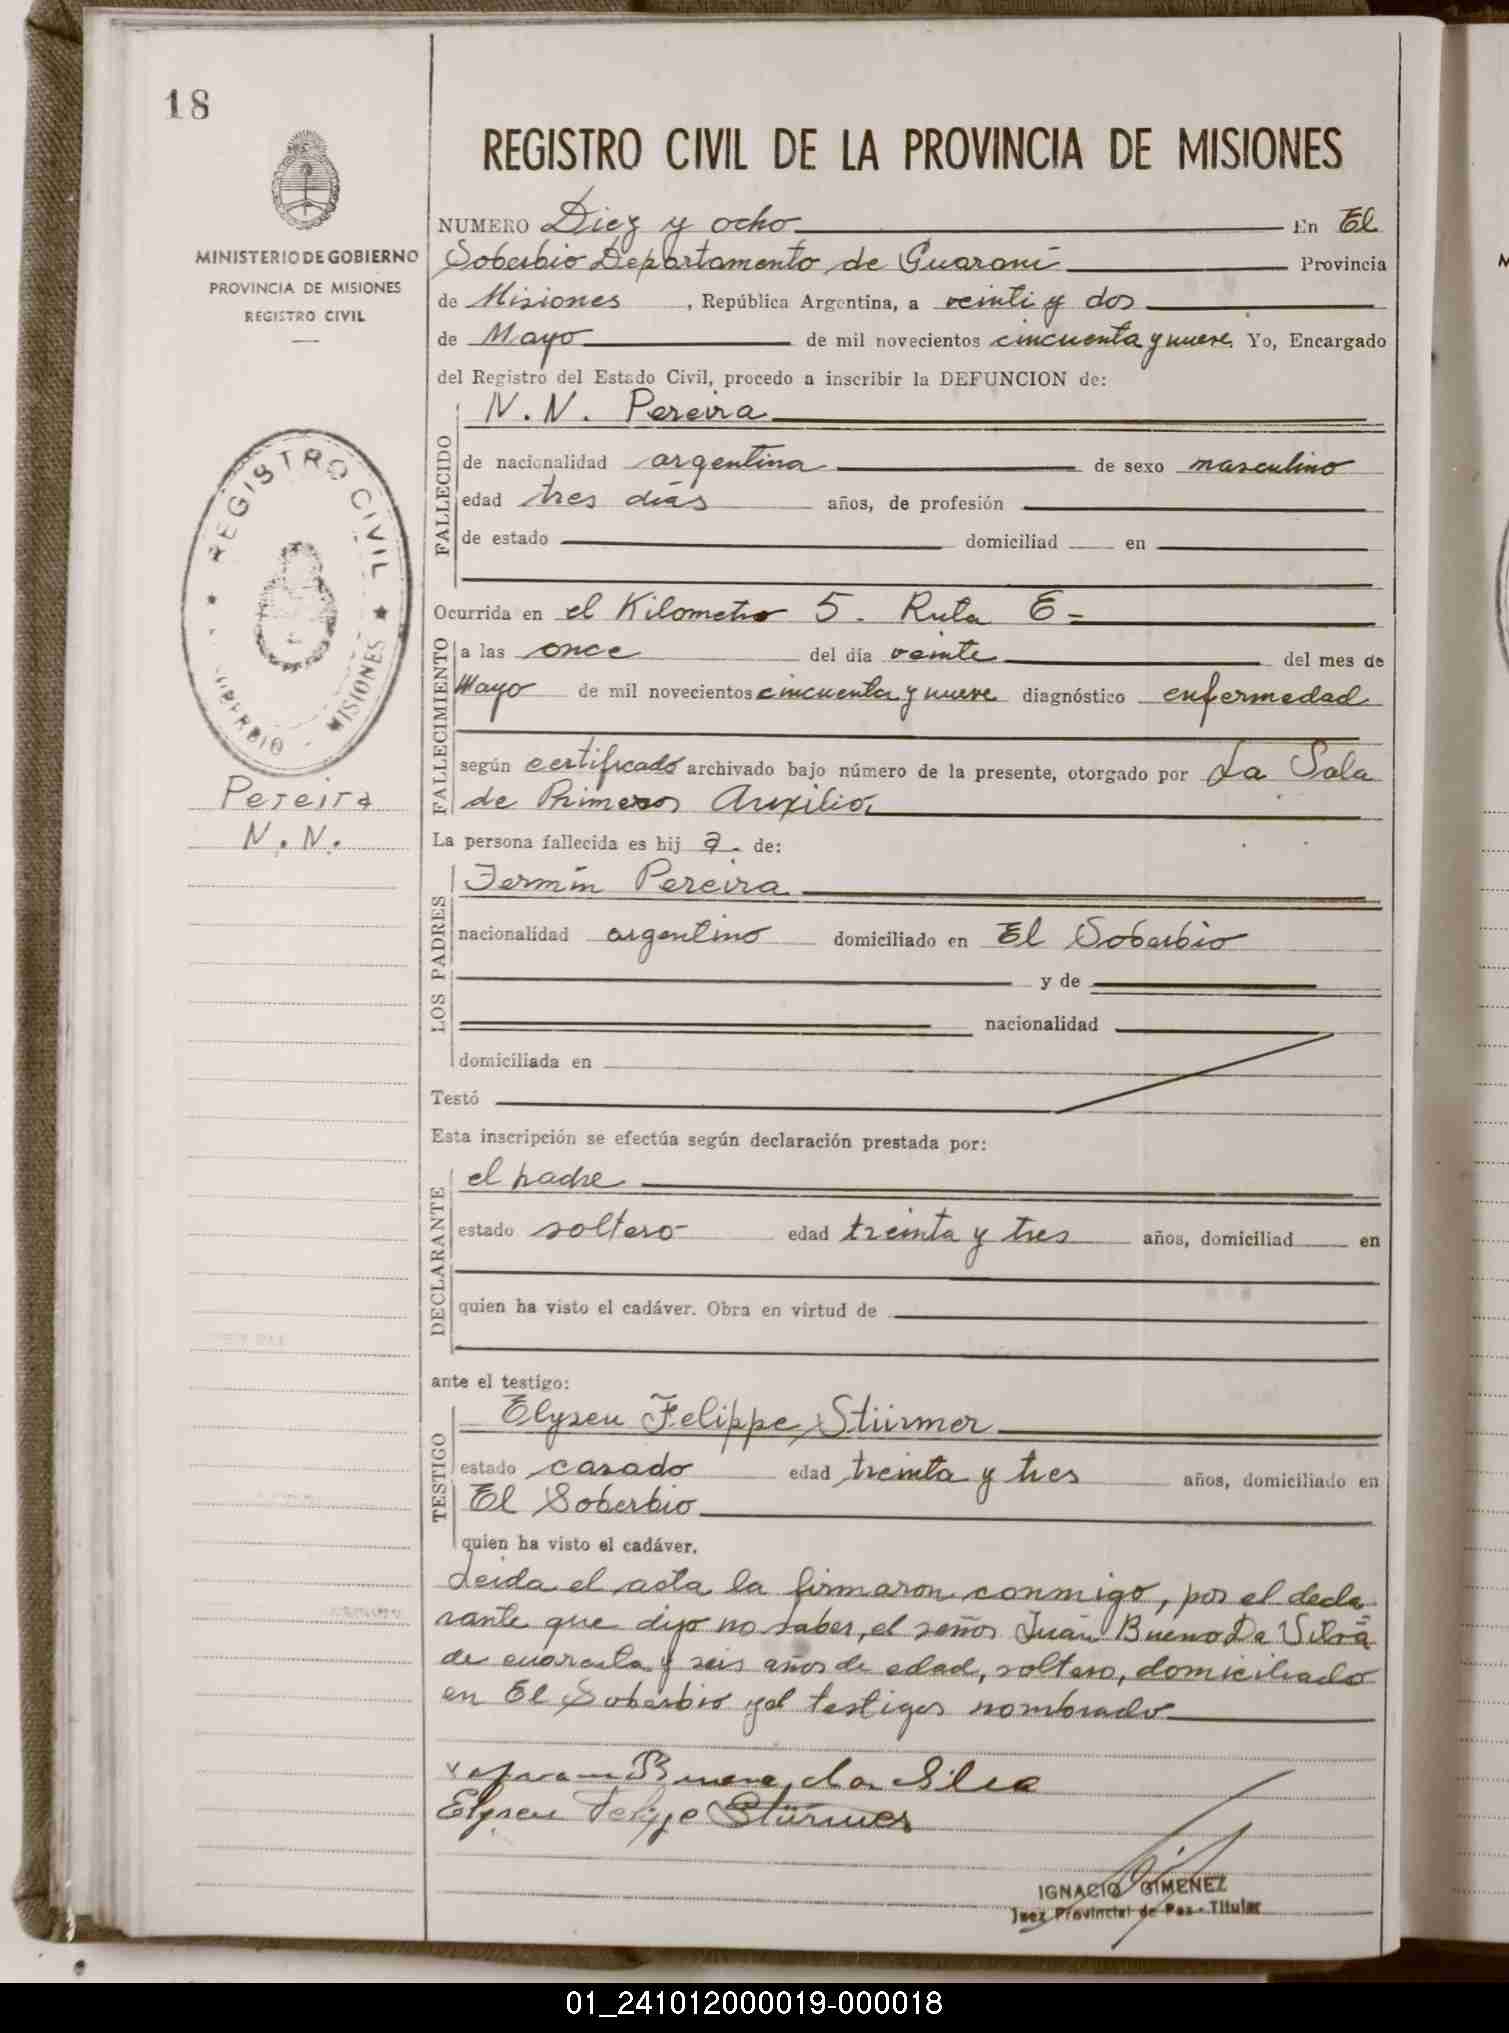 18
MINISTERIO DE GOBIERNO
PROVINCIA DE MISIONES
REGISTRO CIVIL
REGISTRO CIVIL
MISIONES
Pereira
N. N.
REGISTRO CIVIL DE LA PROVINCIA DE MISIONES
NUMERO Diez y ocho En El
Soberbio Departamento de Guaraní Provincia
de Misiones , República Argentina, a veinti y dos
de Mayo de mil novecientos cincuenta y nueve Yo, Encargado
del Registro del Estado Civil, procedo a inscribir la DEFUNCION de:
N. N. Pereira
FALLECIDO
de nacionalidad argentina de sexo masculino
edad tres días años, de profesión
de estado domiciliad en
Ocurrida en el Kilometro 5. Ruta 6 =
FALLECIMIENTO
a las once del día veinte del mes de
Mayo de mil novecientos cincuenta y nueve diagnóstico enfermedad
según certificado archivado bajo número de la presente, otorgado por La Sala
de Primeros Auxilio,
La persona fallecida es hij a. de:
LOS PADRES
Fermín Pereira
nacionalidad argentino domiciliado en El Soberbio
y de
nacionalidad
domiciliada en
Testó
Esta inscripción se efectúa según declaración prestada por:
DECLARANTE
el padre
estado soltero edad treinta y tres años, domiciliad en
quien ha visto el cadáver. Obra en virtud de
ante el testigo:
TESTIGO
Elyseu Felippe Stürmer
estado casado edad treinta y tres años, domiciliado en
El Soberbio
quien ha visto el cadáver.
Leida el acta la firmaron conmigo, por el decla-
rante que dijo no saber, el señor Juan Bueno Da Silva
de cuarenta y seis años de edad, soltero, domiciliado
en El Soberbio y el testigos nombrado
Buena da Silva
Elyseu Felippe Stürmer
IGNACIO GIMENEZ
Juez Provincial de Paz - Titular
01_241012000019-000018